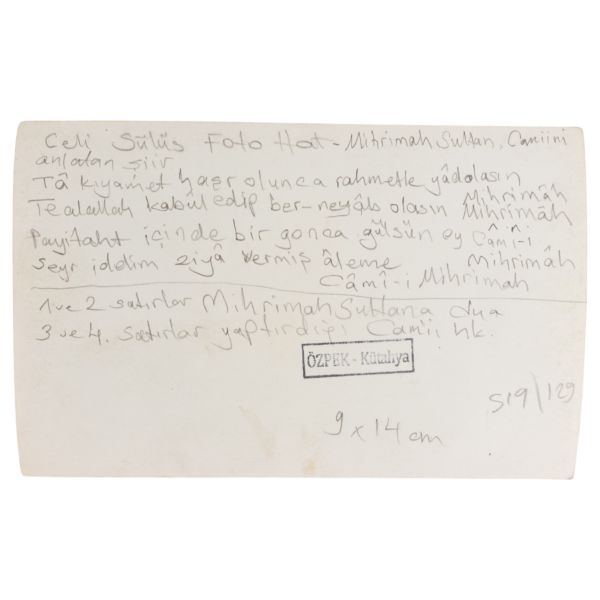 Celi Sülüs Foto Hat - Mihrimah Sultan, Camiini
anlatan şiir
Tâ kıyamet haşr olunca rahmetle yâdolasın Mihrimâh
Tealallah kabûl edip ber-neyâb olasın Mihrimâh
Payitaht içinde bir gonca gülsün ey Câmi-i Mihrimâh
seyr iddim ziyâ vermiş âleme Câmî-i Mihrimah
1 ve 2 satırlar Mihrimah Sultana dua
3 ve 4. satırlar yaptırdığı Camii hk.
ÖZPEK - Kütahya
519/129
9 x 14 cm